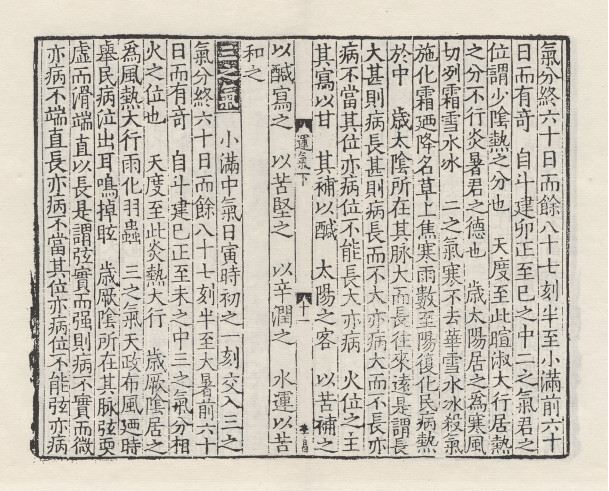 氣分終六十日而餘八十七刻半至小滿前六十
日而有奇　自斗建卯正至巳之中二之氣君之
位謂少陰熱之分也　天度至此暄淑大行居熱
之分不行炎暑君之德也　歲太陽居之為寒風
切冽霜雪水冰　二之氣寒不去華雪水冰殺氣
施化霜廼降名草上焦寒雨數至陽復化民病熱
於中　歲太陰所在其脉大而長往來遠是謂長
大甚則病長甚則病長而不大亦病大而不長亦
病不當其位亦病位不能長大亦病　火位之主
其寫以甘　其補以醎　太陽之客　以苦補之
運氣下　八十一
以醎寫之　以苦堅之　以辛潤之　水運以苦
和之
三之氣　小滿中氣日寅時初之一刻交入三之
氣分終六十日而餘八十七刻半至大暑前六十
日而有奇　自斗建巳正至未之中三之氣分相
火之位也　天度至此炎熱大行　歲厥陰居之
為風熱大行雨化羽蟲　三之氣天政布風廼時
舉民病泣出耳鳴掉眩　歲厥陰所在其脉弦耎
虛而滑端直以長是謂弦實而强則病不實而微
亦病不端直長亦病不當其位亦病位不能弦亦病